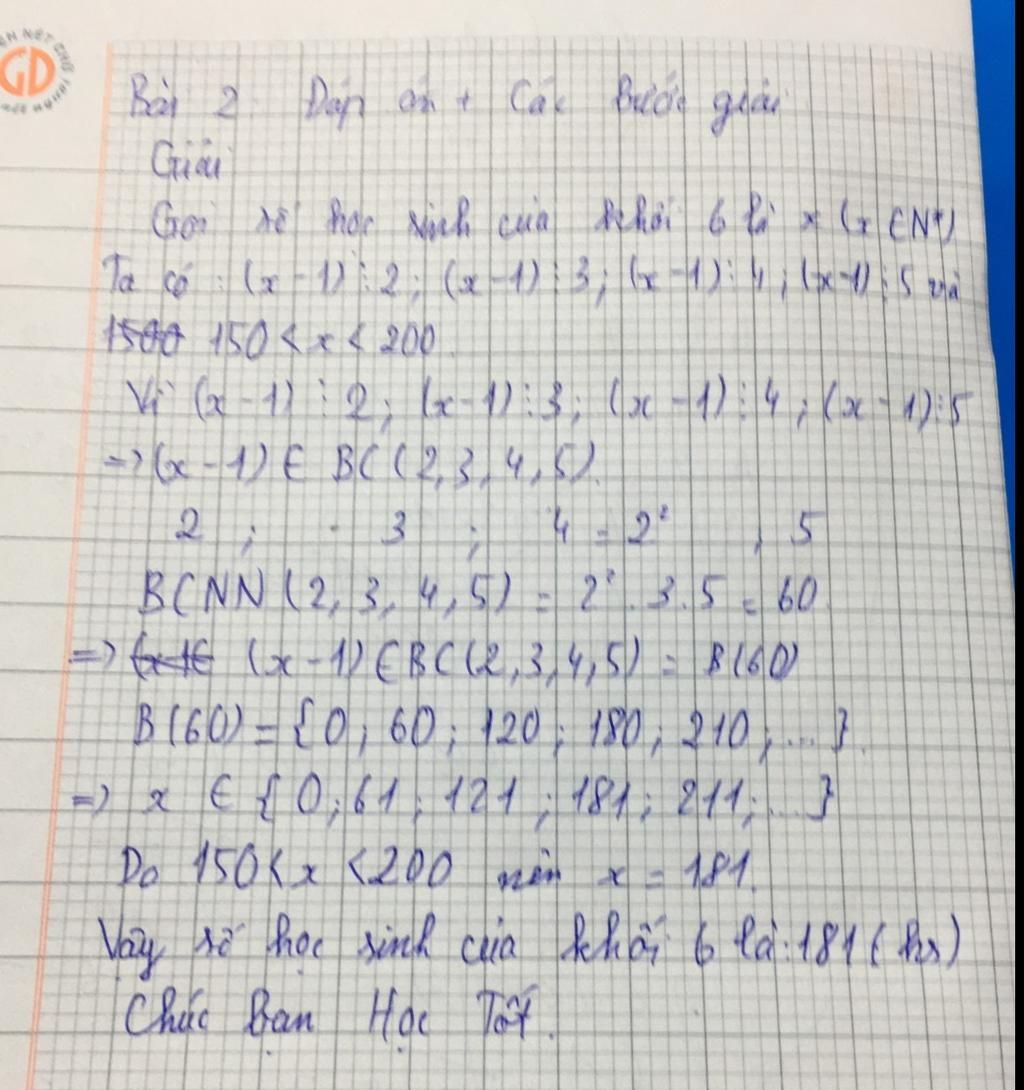 GD
Bài 2 Đáp án + Các Bước giải
Giải
Gọi số học sinh của khối 6 là x (x ∈ N*)
Ta có : (x - 1) ⋮ 2 ; (x - 1) ⋮ 3 ; (x - 1) ⋮ 4 ; (x - 1) ⋮ 5 và
1500 150 < x < 200.
Vì (x - 1) ⋮ 2 ; (x - 1) ⋮ 3 ; (x - 1) ⋮ 4 ; (x - 1) ⋮ 5
=> (x - 1) ∈ BC (2, 3, 4, 5).
2 ; 3 ; 4 = 2² , 5
BCNN (2, 3, 4, 5) = 2² . 3 . 5 = 60
=> (x - 1) ∈ BC (2, 3, 4, 5) = B (60)
B (60) = {0 ; 60 ; 120 ; 180 ; 210 ; ... }.
=> x ∈ {0 ; 61 ; 121 ; 181 ; 211 ; ... }
Do 150 < x < 200 nên x = 181.
Vậy số học sinh của khối 6 là : 181 (hs)
Chúc Bạn Học Tốt.